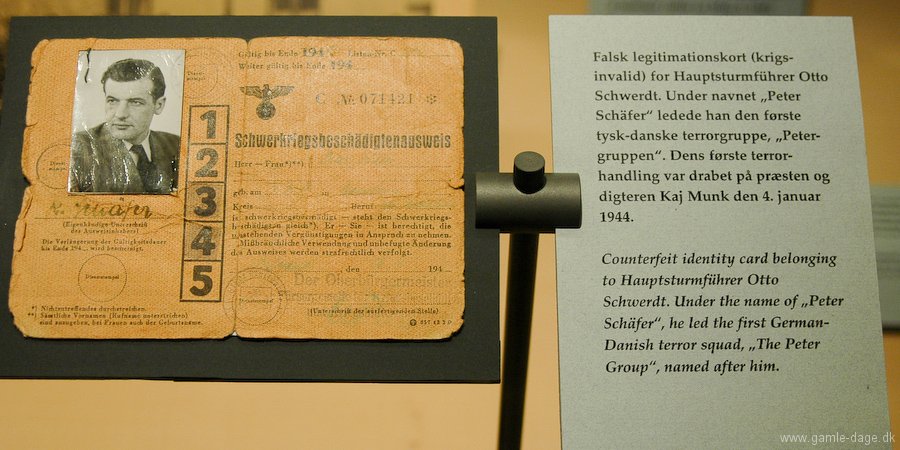 Gültig bis Ende 194
Listen-Nr. C
Weiter gültig bis Ende 194
C № 071421 *
Schwerkriegsbeschädigtenausweis
Herr — Frau*)**)
geb. am
Kreis
Beruf
is schwerkriegsbeschädigt — steht den Schwerkriegs-
beschädigten gleich*). Er — Sie — ist berechtigt, die
zustehenden Vergünstigungen in Anspruch zu nehmen.
Mißbräuchliche Verwendung und unbefugte Änderung
des Ausweises werden strafrechtlich verfolgt.
den
194
Der Oberbürgermeister
(Unterschrift der ausfertigenden Stelle)
1
2
3
4
5
Schäfer
(Eigenhändige Unterschrift
des Ausweisinhabers)
Die Verlängerung der Gültigkeitsdauer
bis Ende 194 wird bescheinigt.
Dienststempel
*) Nichtzutreffendes durchstreichen.
**) Sämtliche Vornamen (Rufname unterstreichen)
sind anzugeben, bei Frauen auch der Geburtsname.
Falsk legitimationskort (krigs-
invalid) for Hauptsturmführer Otto
Schwerdt. Under navnet „Peter
Schäfer“ ledede han den første
tysk-danske terrorgruppe, „Peter-
gruppen“. Dens første terror-
handling var drabet på præsten og
digteren Kaj Munk den 4. januar
1944.
Counterfeit identity card belonging
to Hauptsturmführer Otto
Schwerdt. Under the name of „Peter
Schäfer“, he led the first German-
Danish terror squad, „The Peter
Group“, named after him.
www.gamle-dage.dk